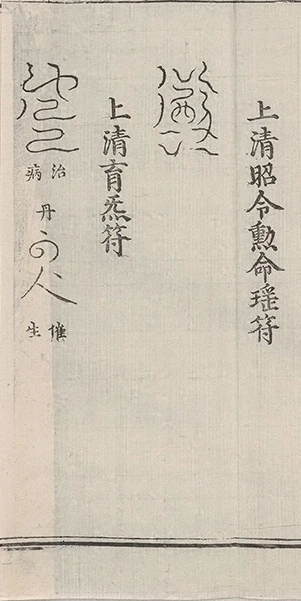 上清昭令勲命瑶符
上清育炁符
治病
丹
催生